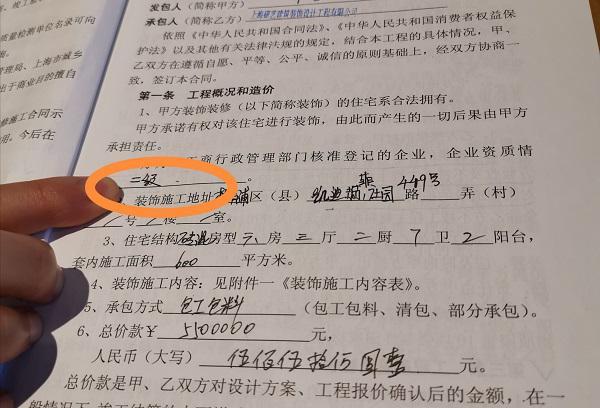 质量检测单位名录可向
管理局、上海市城乡
出于商业目的擅自
修施工合同示
用。今后在
发包人（简称甲方）
承包人（简称乙方）
依照《中华人民共和国合同法》、《中华人民共和国消费者权益保
护法》以及其他有关法律法规的规定，结合本工程的具体情况，甲、
乙双方在遵循自愿、平等、公平、诚信的原则基础上，经双方协商一
致，签订本合同。
第一条 工程概况和造价
1、甲方装饰装修（以下简称装饰）的住宅系合法拥有。
甲方承诺有权对该住宅进行装饰，由此而产生的一切后果由甲方
承担责任。
工商行政管理部门核准登记的企业，企业资质情
二级
装饰施工地址 区（县） 路 449号 弄（村）
号 楼 室。
3、住宅结构砖混房型六房三厅二厨7卫2阳台，
套内施工面积 600 平方米。
4、装饰施工内容：见附件一《装饰施工内容表》。
5、承包方式 包工包料 （包工包料、清包、部分承包）。
6、总价款￥ 5500000 元，
人民币（大写） 伍佰伍拾 元。
总价款是甲、乙双方对设计方案、工程报价确认后的金额，在一